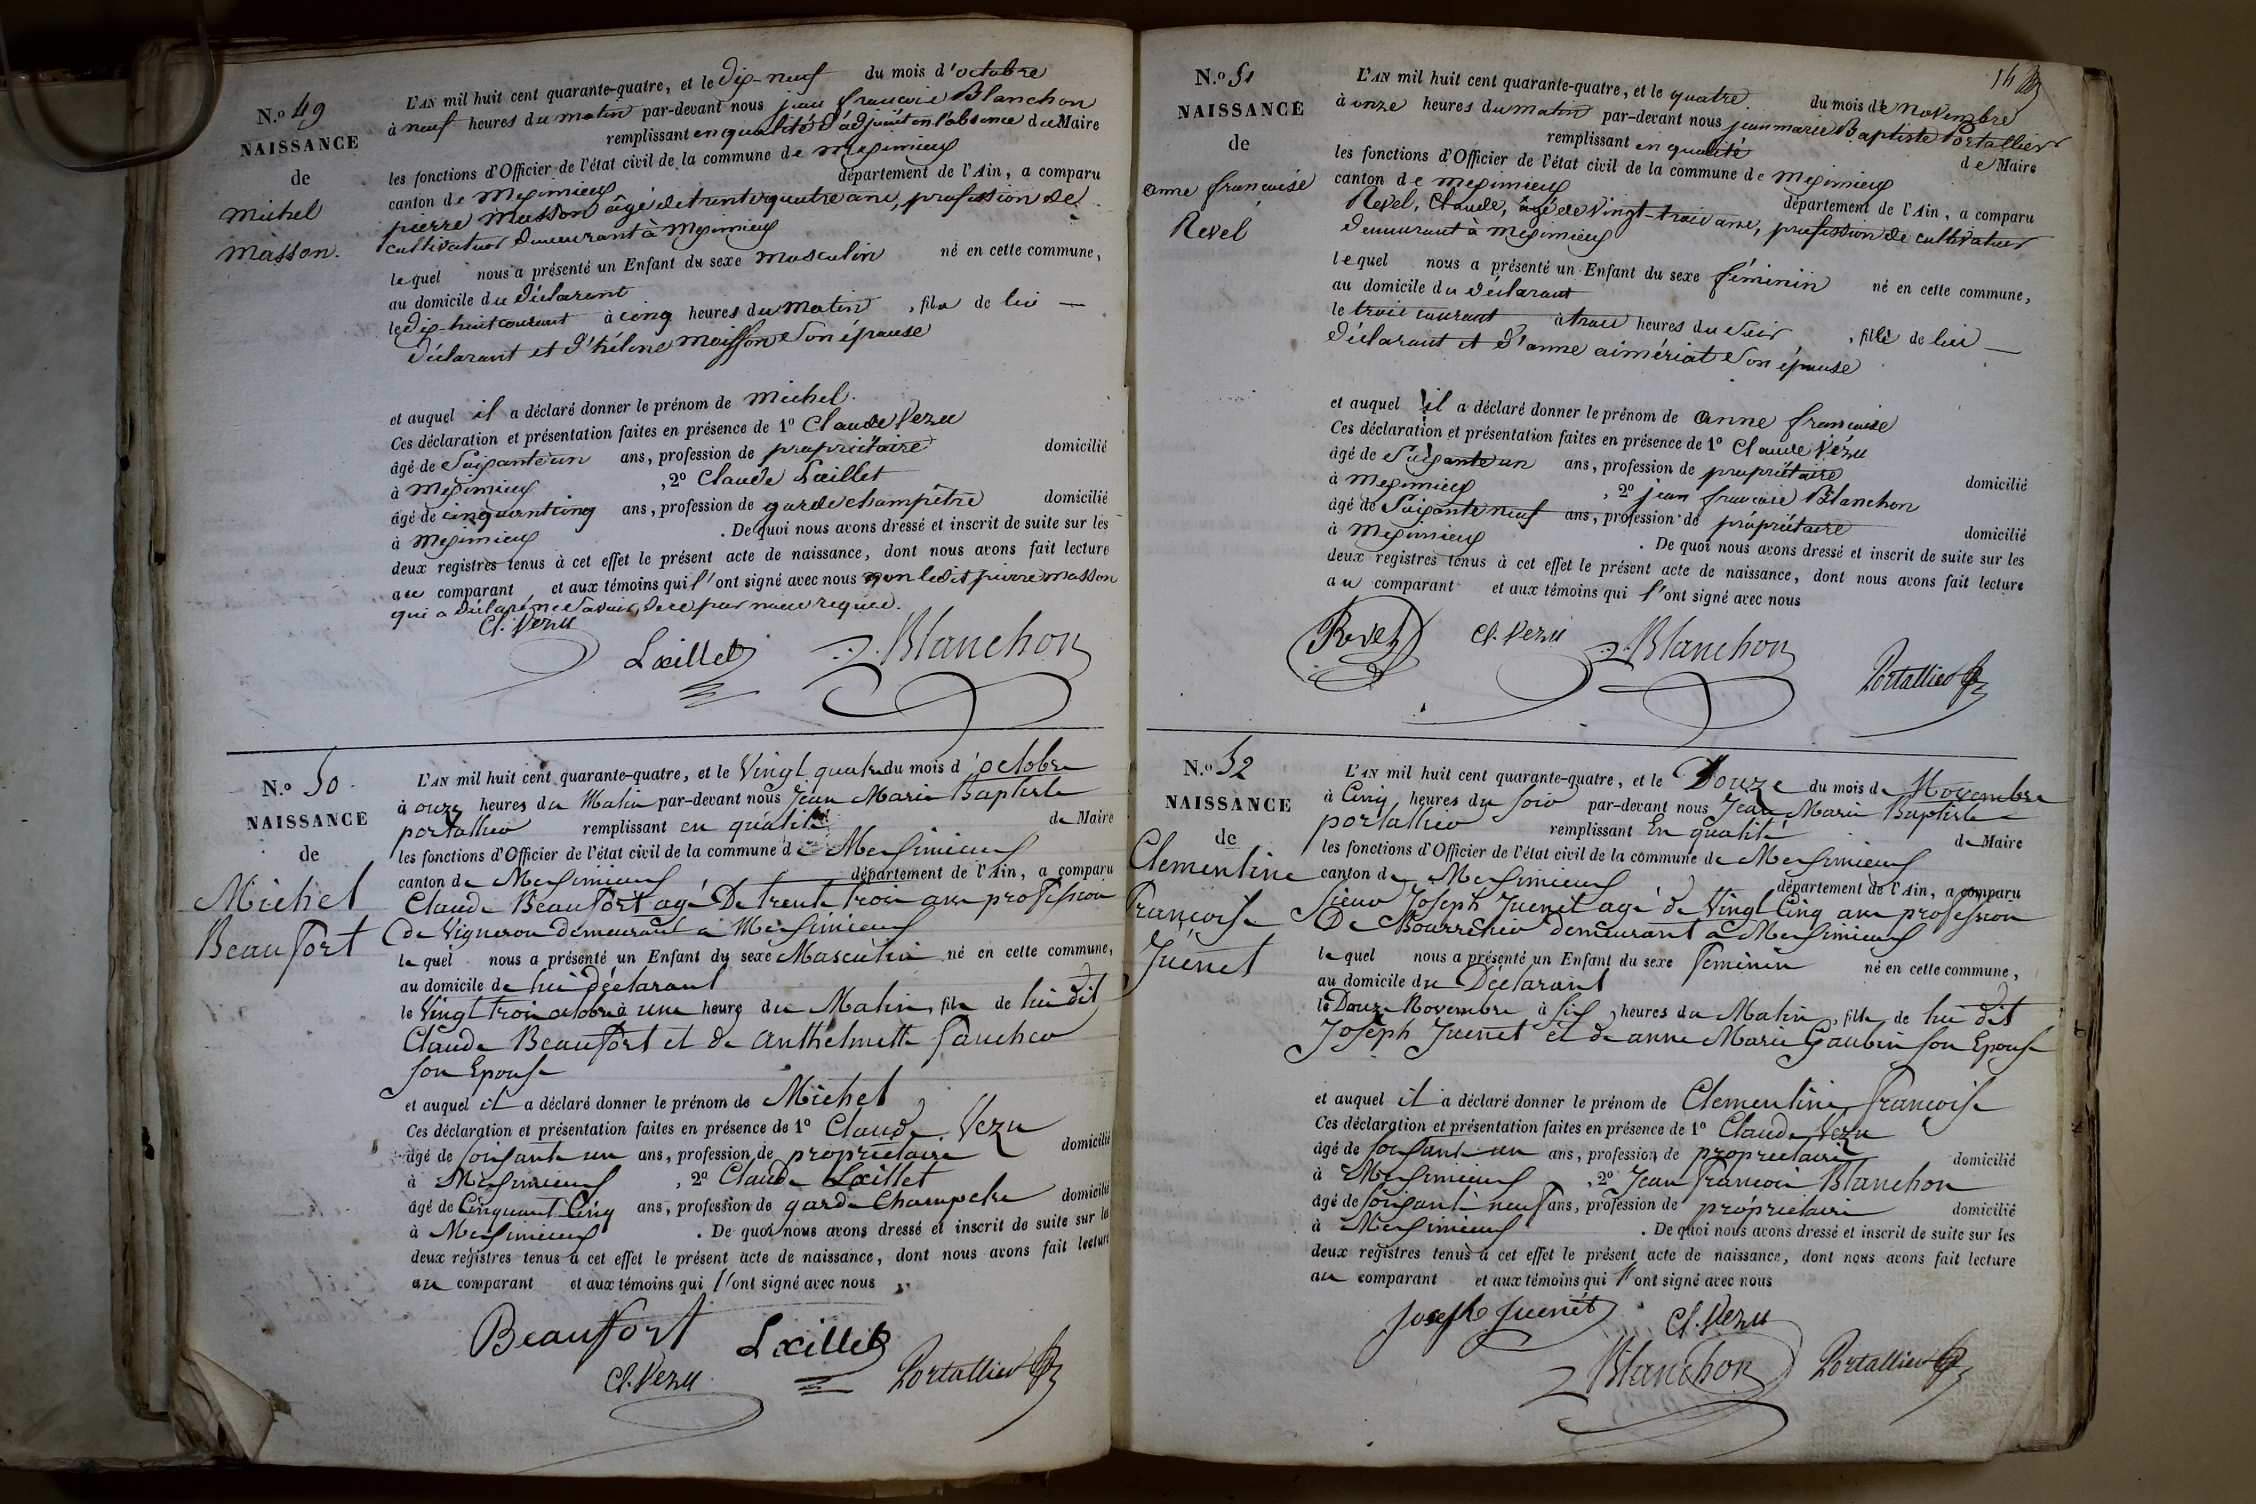 N.º 49
NAISSANCE
de
michel
masson.
L'AN mil huit cent quarante-quatre, et le dix-neuf du mois d'octobre
à neuf heures du matin par-devant nous jean françois Blanchon
remplissant en qualité d'adjoint en l'absence du Maire
les fonctions d'Officier de l'état civil de la commune de meximieux
canton de meximieux département de l'Ain, a comparu
pierre masson âgé de trente quatre ans, profession de
cultivateur demeurant à meximieux
lequel nous a présenté un Enfant du sexe masculin né en cette commune,
au domicile du déclarant
le dix-huit courant à cinq heures du matin, fils de lui —
déclarant et d'hélène moisson son épouse
et auquel il a déclaré donner le prénom de michel.
Ces déclaration et présentation faites en présence de 1º Claude Vezu
âgé de soixante un ans, profession de propriétaire domicilié
à meximieux, 2º Claude Lxillet
âgé de cinquant cinq ans, profession de garde champêtre domicilié
à meximieux. De quoi nous avons dressé et inscrit de suite sur les
deux registres tenus à cet effet le présent acte de naissance, dont nous avons fait lecture
au comparant et aux témoins qui l'ont signé avec nous non ledit pierre masson
qui a déclaré ne savoir, de ce par nous requis.
Cl. Vezu
Lxillet
Blanchon
N.º 50
NAISSANCE
de
Michel
Beaufort
L'AN mil huit cent quarante-quatre, et le Vingt quatre du mois d'octobre
à onze heures du Matin par-devant nous Jean Marie Baptiste
portallier remplissant en qualité de Maire
les fonctions d'Officier de l'état civil de la commune de Meximieux
canton de Meximieux département de l'Ain, a comparu
Claude Beaufort agé De trente trois ans profession
de Vigneron demeurant à Meximieux
lequel nous a présenté un Enfant du sexe Masculin né en cette commune,
au domicile de lui déclarant
le Vingt trois octobre à une heure du Matin, fils de lui dit
Claude Beaufort et de anthelmette fancheo
son Epouse
et auquel il a déclaré donner le prénom de Michel
Ces déclaration et présentation faites en présence de 1º Claude Vezu
âgé de soixante un ans, profession de propriétaire domicilié
à Meximieux, 2º Claude Lxillet
âgé de Cinquant Cinq ans, profession de garde Champetre domicilié
à Meximieux. De quoi nous avons dressé et inscrit de suite sur les
deux registres tenus à cet effet le présent acte de naissance, dont nous avons fait lecture
au comparant et aux témoins qui l'ont signé avec nous
Beaufort Lxillet
Cl. Vezu Portallier
14
N.º 51
NAISSANCE
de
anne françoise
Revel
L'AN mil huit cent quarante-quatre, et le quatre du mois de novembre
à onze heures du matin par-devant nous jean marie Baptiste Portallier
remplissant en qualité de Maire
les fonctions d'Officier de l'état civil de la commune de meximieux
canton de meximieux département de l'Ain, a comparu
Revel, Claude, âgé de vingt-trois ans, profession de cultivateur
demeurant à meximieux
lequel nous a présenté un Enfant du sexe féminin né en cette commune,
au domicile du déclarant
le trois courant à trois heures du soir, fille de lui —
déclarant et d'anne aimériat son épouse
et auquel il a déclaré donner le prénom de anne françoise
Ces déclaration et présentation faites en présence de 1º Claude Vézu
âgé de soixante un ans, profession de propriétaire domicilié
à meximieux, 2º jean françois Blanchon
âgé de soixante neuf ans, profession de propriétaire domicilié
à meximieux. De quoi nous avons dressé et inscrit de suite sur les
deux registres tenus à cet effet le présent acte de naissance, dont nous avons fait lecture
au comparant et aux témoins qui l'ont signé avec nous
Revel Cl. Vezu Blanchon
Portallier
N.º 52
NAISSANCE
de
Clementine
françoise
Juenet
L'AN mil huit cent quarante-quatre, et le Douze du mois de Novembre
à Cinq heures du soir par-devant nous Jean Marie Baptiste
portallier remplissant En qualité de Maire
les fonctions d'Officier de l'état civil de la commune de Meximieux
canton de Meximieux département de l'Ain, a comparu
sieur Joseph Juenet agé de Vingt Cinq ans profession
De Bourrelier demeurant à Meximieux
lequel nous a présenté un Enfant du sexe feminin né en cette commune,
au domicile du Déclarant
le Douze Novembre à six heures du Matin, fille de lui dit
Joseph Juenet et de anne Marie Gaubin son Epouse
et auquel il a déclaré donner le prénom de Clementine françoise
Ces déclaration et présentation faites en présence de 1º Claude Vezu
âgé de soixante un ans, profession de propriétaire domicilié
à Meximieux, 2º Jean françois Blanchon
âgé de soixante neuf ans, profession de propriétaire domicilié
à Meximieux. De quoi nous avons dressé et inscrit de suite sur les
deux registres tenus à cet effet le présent acte de naissance, dont nous avons fait lecture
au comparant et aux témoins qui l'ont signé avec nous
Joseph Juenet Cl. Vezu
Blanchon Portallier